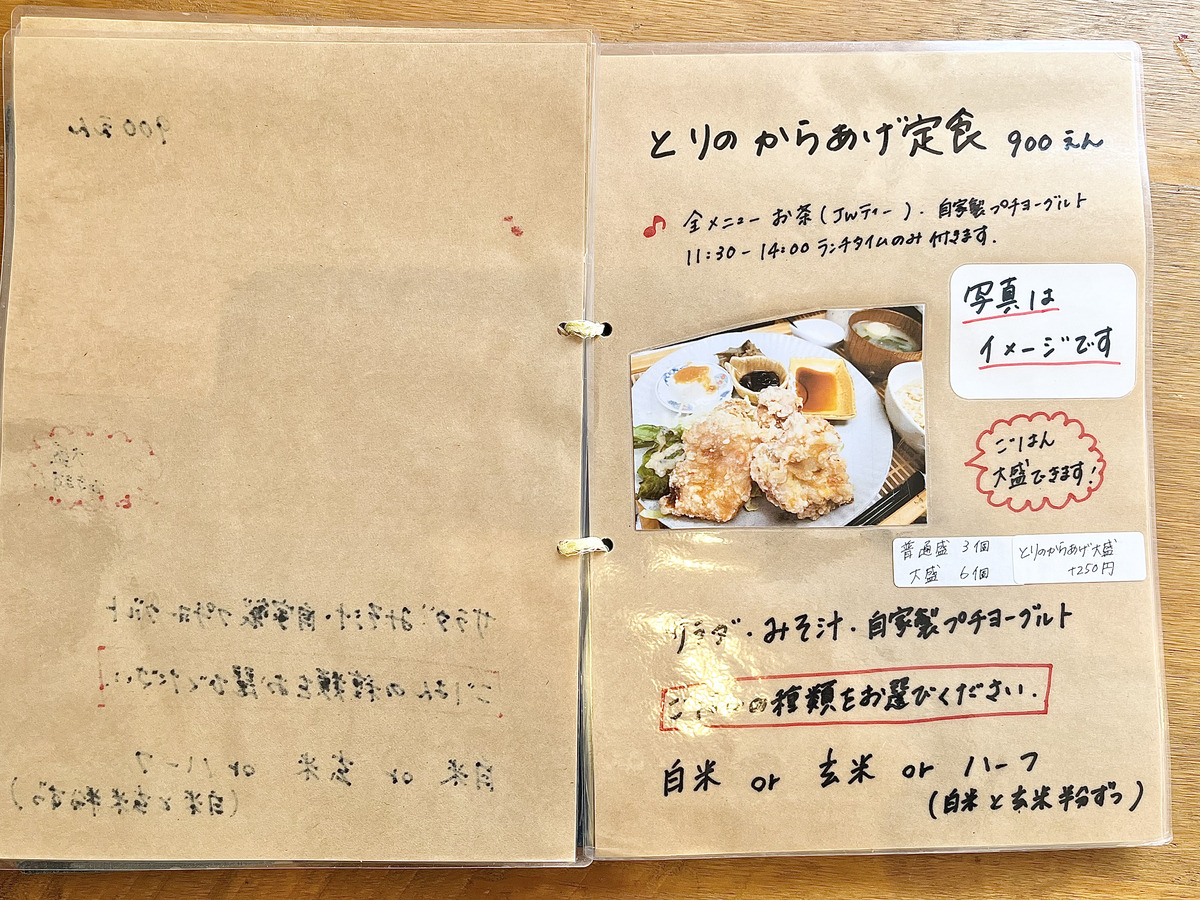 とりのからあげ定食 900えん
全メニュー お茶(JWティー)・自家製プチヨーグルト
11:30-14:00 ランチタイムのみ 付きます.
写真は
イメージです
ごはん
大盛できます!
普通盛 3個
大盛 6個
とりのからあげ大盛
+250円
サラダ・みそ汁・自家製プチヨーグルト
の種類をお選びください.
白米 or 玄米 or ハーフ
(白米と玄米半分ずつ)